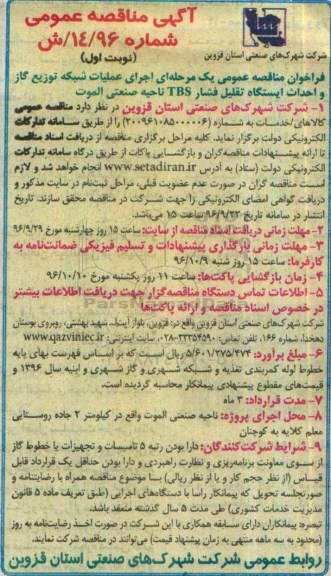 آگهی مناقصه عمومی
شماره ۱۴/۹۶/ش
(نوبت اول)
شرکت شهرک‌های صنعتی استان قزوین
فراخوان مناقصه عمومی یک مرحله‌ای اجرای عملیات شبکه توزیع گاز
و احداث ایستگاه تقلیل فشار TBS ناحیه صنعتی الموت
۱- شرکت شهرک‌های صنعتی استان قزوین در نظر دارد مناقصه عمومی
کالاهای/خدمات به شماره (۲۰۰۹۶۱۰۸۵۰۰۰۰۰۶) را از طریق سامانه تدارکات
الکترونیکی دولت برگزار نماید. کلیه مراحل برگزاری مناقصه از دریافت اسناد مناقصه
تا ارائه پیشنهادات مناقصه‌گران و بازگشایی پاکات از طریق درگاه سامانه تدارکات
الکترونیکی دولت (ستاد) به آدرس www.setadiran.ir انجام خواهد شد و لازم
است مناقصه گران در صورت عدم عضویت قبلی، مراحل ثبت‌نام در سایت مذکور و
دریافت گواهی امضای الکترونیکی را جهت شرکت در مناقصه محقق سازند. تاریخ
انتشار در سامانه تاریخ ۹۶/۹/۲۲ ساعت ۱۵ می‌باشد.
۲- مهلت زمانی دریافت اسناد مناقصه از سایت: ساعت ۱۵ روز چهارشنبه مورخ ۹۶/۹/۲۹
۳- مهلت زمانی بارگذاری پیشنهادات و تسلیم فیزیکی ضمانت‌نامه به
کارفرما: ساعت ۱۵ روز شنبه ۹۶/۱۰/۹
۴- زمان بازگشایی پاکت‌ها: ساعت ۱۱ روز یکشنبه مورخ ۹۶/۱۰/۱۰
۵- اطلاعات تماس دستگاه مناقصه‌گزار جهت دریافت اطلاعات بیشتر
در خصوص اسناد مناقصه و ارائه پاکت‌ها
شرکت شهرک‌های صنعتی استان قزوین واقع در: قزوین، بلوار آیت‌ا... شهید بهشتی، روبروی بوستان
دهخدا، شماره ۱۶۶، تلفن تماس: ۳۳۳۵۴۵۹۰-۰۲۸، سایت اینترنتی: www.qazviniec.ir
۶- مبلغ برآورد: ۵/۶۰۱/۲۷۵/۴۷۴ ریال است که بر اساس فهرست بهای پایه
خطوط لوله کمربندی تغذیه و شبکه شهری و گاز شهری و ابنیه سال ۱۳۹۶ و
قیمت‌های مقطوع پیشنهادی پیمانکار محاسبه گردیده است.
۷- مدت قرارداد: ۳ ماه
۸- محل اجرای پروژه: ناحیه صنعتی الموت واقع در کیلومتر ۲ جاده روستایی
معلم کلایه به کوچنان
۹- شرایط شرکت‌کنندگان: دارا بودن رتبه ۵ تاسیسات و تجهیزات یا خطوط گاز
از سوی معاونت برنامه‌ریزی و نظارت راهبردی و دارا بودن حداقل یک قرارداد قابل
قیاس (از نظر حجم کار و یا از نظر ریالی) با موضوع مناقصه همراه با رضایتنامه و
صورتجلسه تحویل که پیمانکار راسا با دستگاه‌های اجرایی (طبق تعریف ماده ۵ قانون
مدیریت خدمات کشوری) طی مدت ۵ سال گذشته منعقد باشد.
تبصره: پیمانکاران دارای سابقه همکاری با این شرکت در صورت اخذ رضایت‌نامه به روز
(محدود به سه ماهه منتهی به زمان پیشنهاد قیمت) می‌توانند در مناقصه شرکت نمایند.
روابط عمومی شرکت شهرک‌های صنعتی استان قزوین